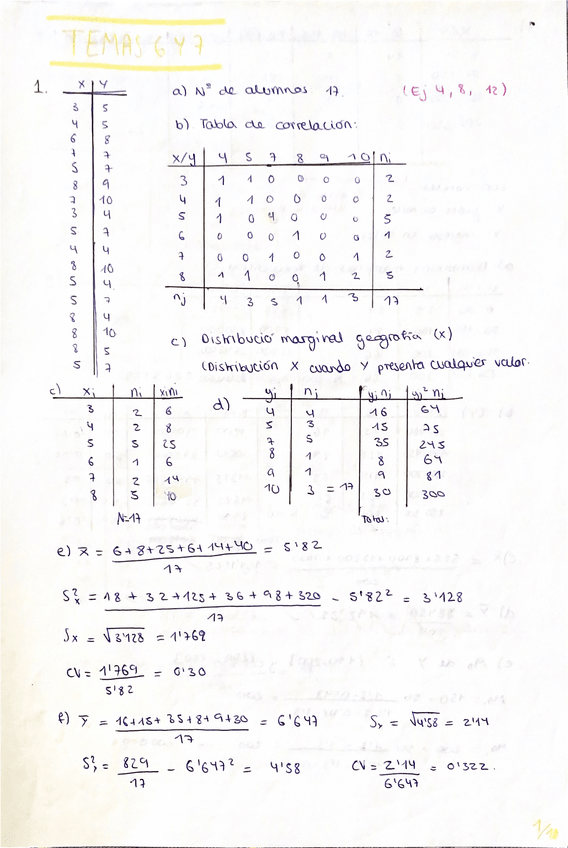 TEMAS 6 Y 7
1. X Y
3 5
4 5
6 8
7 7
5 7
8 9
7 10
3 4
5 7
4 4
8 10
5 4
5 7
8 4
8 10
8 5
5 7
a) Nº de alumnos 17. (Ej 4, 8, 12)
b) Tabla de correlación:
X/Y 4 5 7 8 9 10 ni
3 1 1 0 0 0 0 2
4 1 1 0 0 0 0 2
5 1 0 4 0 0 0 5
6 0 0 0 1 0 0 1
7 0 0 1 0 0 1 2
8 1 1 0 0 1 2 5
nj 4 3 5 1 1 3 17
c) Distribució marginal geografia (x)
(Distribución X cuando Y presenta cualquier valor.
c) Xi ni xini
3 2 6
4 2 8
5 5 25
6 1 6
7 2 14
8 5 40
N=17
d) yj nj yjnj yj² nj
4 4 16 64
5 3 15 75
7 5 35 245
8 1 8 64
9 1 9 81
10 3 = 17 30 300
Total:
e) x̄ = 6+8+25+6+14+40 / 17 = 5'82
S²x = 18 + 32 + 125 + 36 + 98 + 320 / 17 - 5'82² = 3'128
Sx = √3'128 = 1'769
CV = 1'769 / 5'82 = 0'30
f) ȳ = 16+15+35+8+9+30 / 17 = 6'647 Sy = √4'58 = 2'14
S²y = 829 / 17 - 6'647² = 4'58 CV = 2'14 / 6'647 = 0'322.
1/10